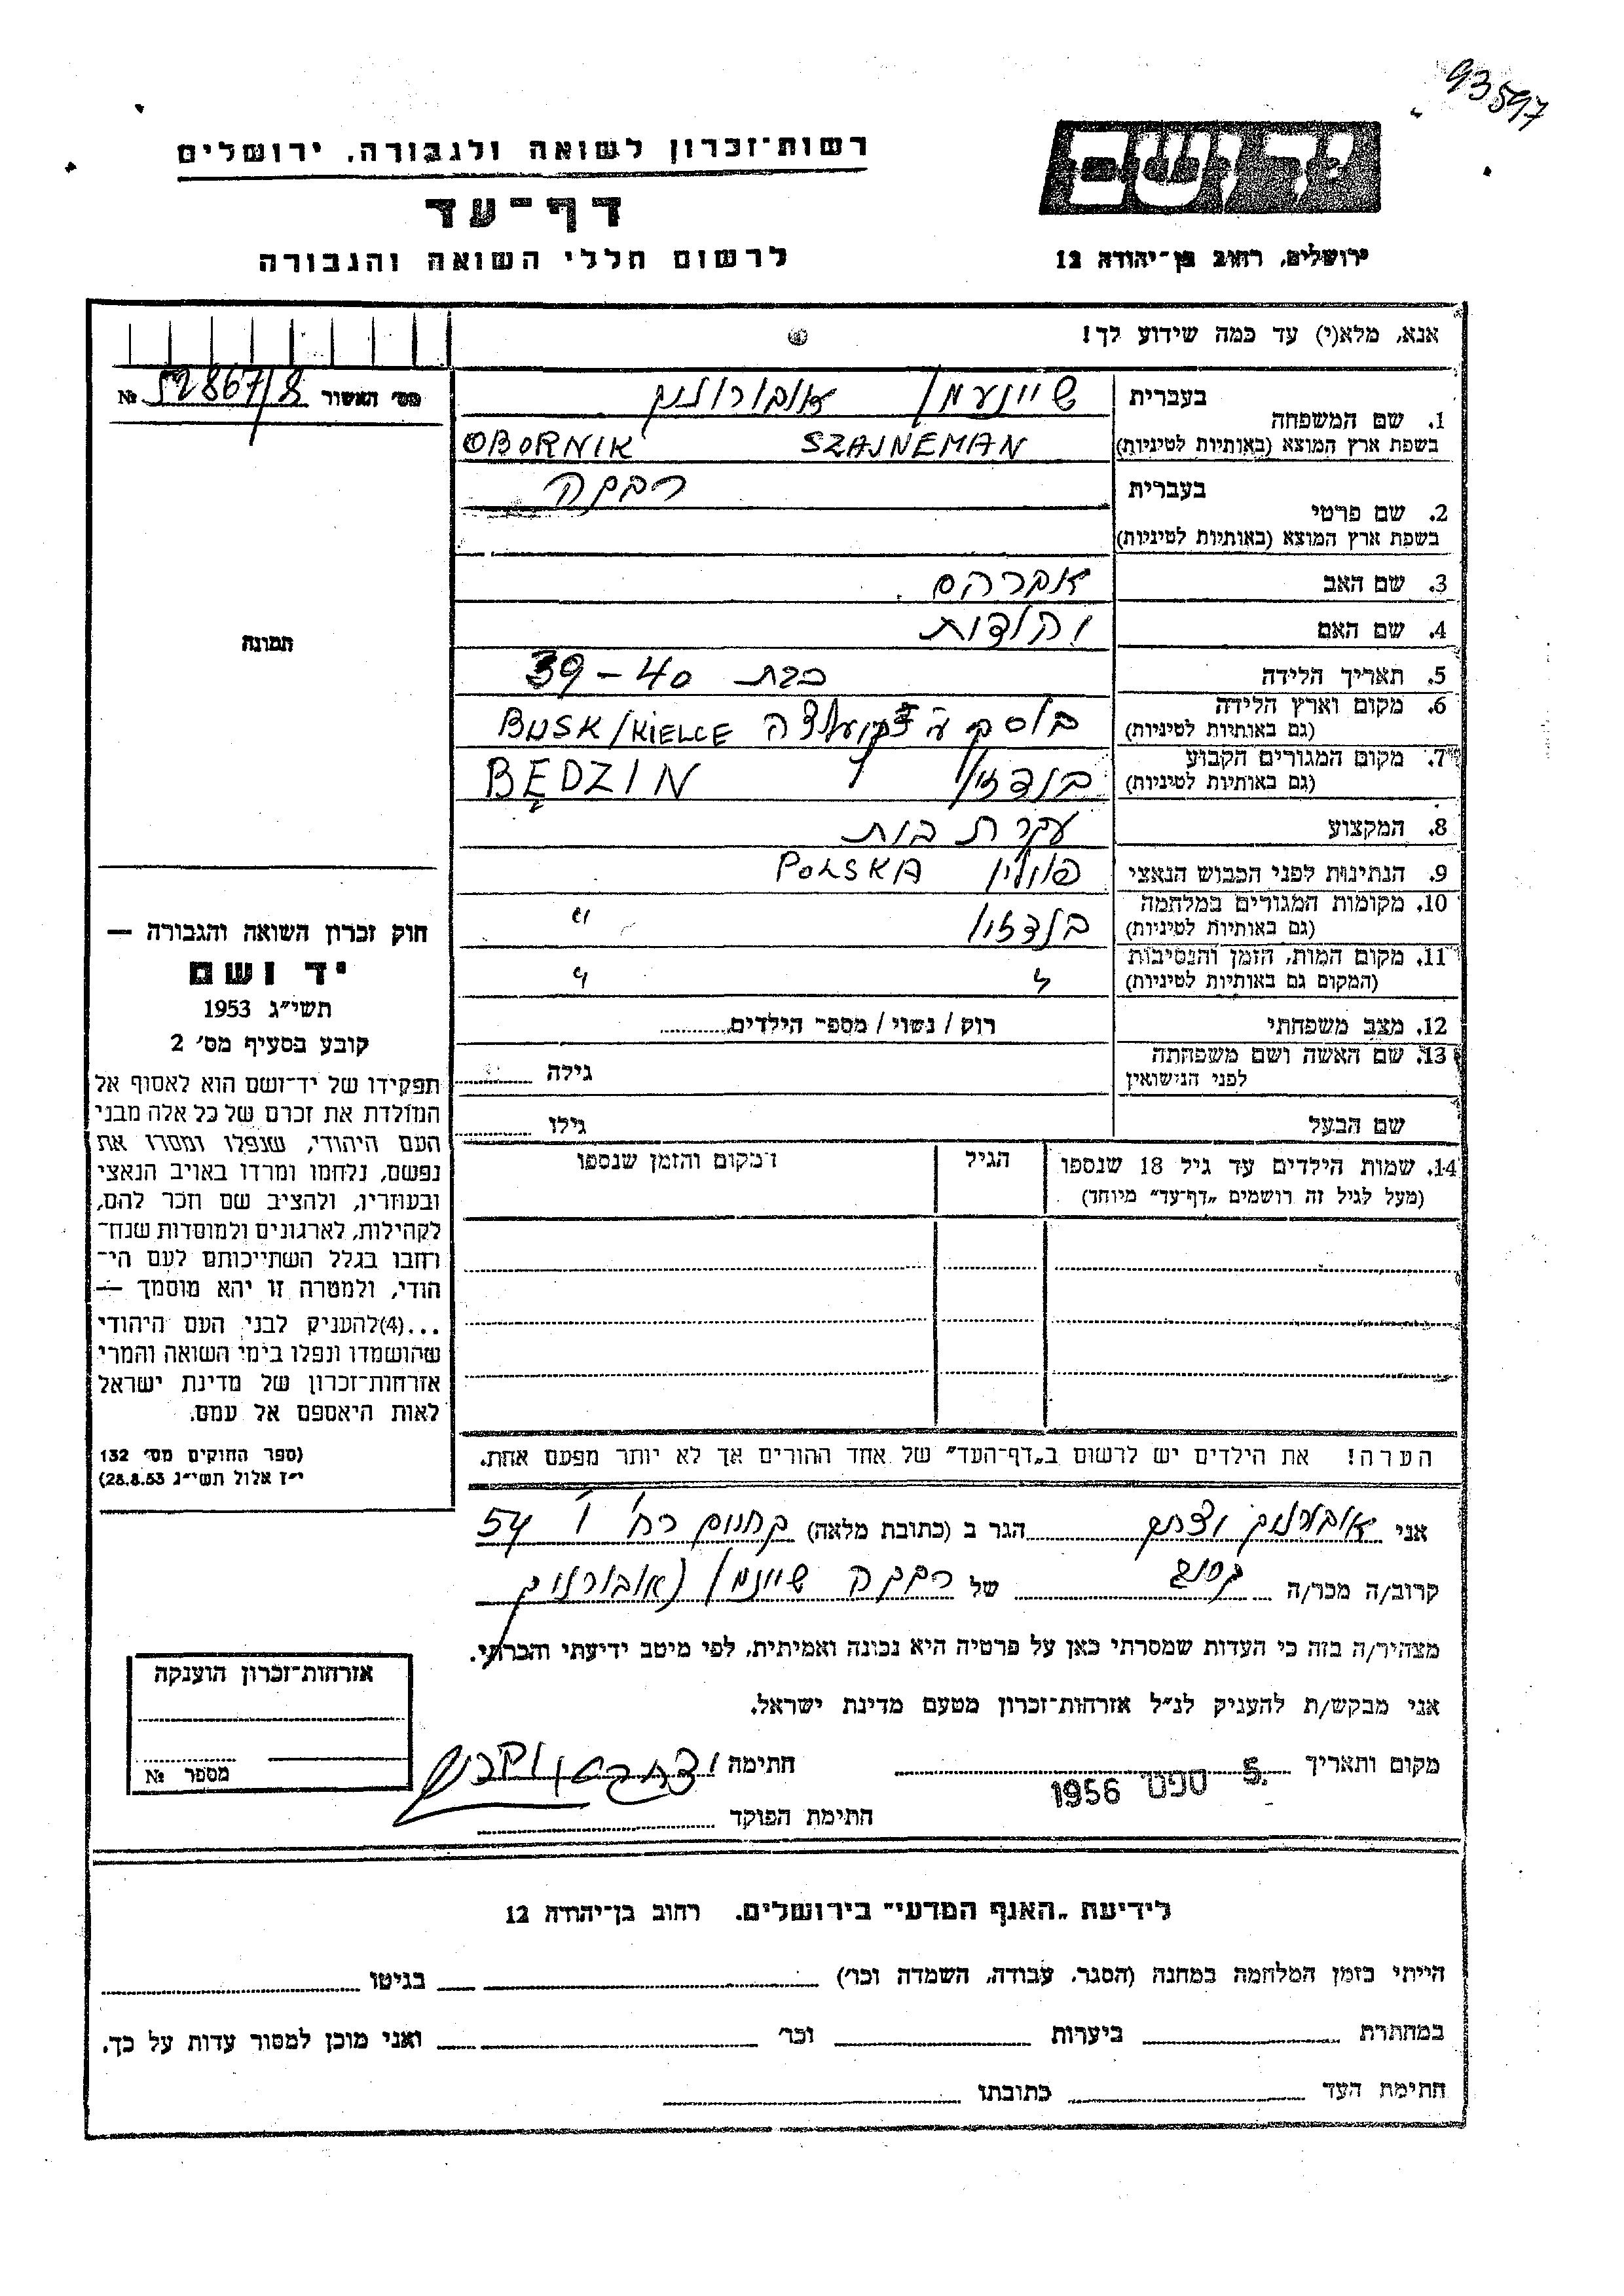 93597
יד ושם
רשות־זכרון לשואה ולגבורה, ירושלים
דף־עד
ירושלים, רחוב בן־יהודה 12
לרשום חללי השואה והגבורה
אנא, מלא(י) עד כמה שידוע לך!
מס׳ האשור 52867/8 №
1. שם המשפחה
בעברית שיינעמן אובורניק
בשפת ארץ המוצא (באותיות לטיניות) SZAJNEMAN OBORNIK
2. שם פרטי
בעברית רבקה
בשפת ארץ המוצא (באותיות לטיניות)
3. שם האב אברהם
4. שם האם יהודית
5. תאריך הלידה כבת 39-40
6. מקום וארץ הלידה
(גם באותיות לטיניות) BUSK/KIELCE
7. מקום המגורים הקבוע
(גם באותיות לטיניות) בנדזין BĘDZIN
8. המקצוע עקרת בית
9. הנתינות לפני הכבוש הנאצי פולין POLSKA
10. מקומות המגורים במלחמה
(גם באותיות לטיניות) בנדזין "
11. מקום המות, הזמן והנסיבות
(המקום גם באותיות לטיניות)
12. מצב משפחתי רווק / נשוי / מספר הילדים
13. שם האשה ושם משפחתה
לפני הנישואין גילה
שם הבעל גילו
14. שמות הילדים עד גיל 18 שנספו הגיל המקום והזמן שנספו
(מעל לגיל זה רושמים „דף־עד״ מיוחד)
הערה! את הילדים יש לרשום ב„דף־העד״ של אחד ההורים אך לא יותר מפעם אחת.
תמונה
חוק זכרון השואה והגבורה —
יד ושם
תשי״ג 1953
קובע בסעיף מס׳ 2
תפקידו של יד־ושם הוא לאסוף אל
המולדת את זכרם של כל אלה מבני
העם היהודי, שנפלו ומסרו את
נפשם, נלחמו ומרדו באויב הנאצי
ובעוזריו, ולהציב שם וזכר להם,
לקהילות, לארגונים ולמוסדות שנח־
רחבו בגלל השתייכותם לעם הי־
הודי, ולמטרה זו יהא מוסמך —
...(4)להעניק לבני העם היהודי
שהושמדו ונפלו בימי השואה והמרי
אזרחות־זכרון של מדינת ישראל
לאות היאספם אל עמם.
(ספר החוקים מס׳ 132
י״ז אלול תשי״ג 28.8.53)
אני אובורניק הגר ב (כתובת מלאה) רח׳ 54
קרוב/ה מכר/ה של רבקה שיינמן (אובורניק
מצהיר/ה בזה כי העדות שמסרתי כאן על פרטיה היא נכונה ואמיתית, לפי מיטב ידיעתי והכרתי.
אני מבקש/ת להעניק לנ״ל אזרחות־זכרון מטעם מדינת ישראל.
מקום ותאריך 5. ספט 1956 חתימה
חתימת הפוקד
אזרחות־זכרון הוענקה
מספר №
לידיעת „האגף המדעי״ בירושלים, רחוב בן־יהודה 12
הייתי בזמן המלחמה במחנה (הסגר, עבודה, השמדה וכו׳) בגיטו
במחתרת ביערות וכו׳ ואני מוכן למסור עדות על כך.
חתימת העד כתובתו